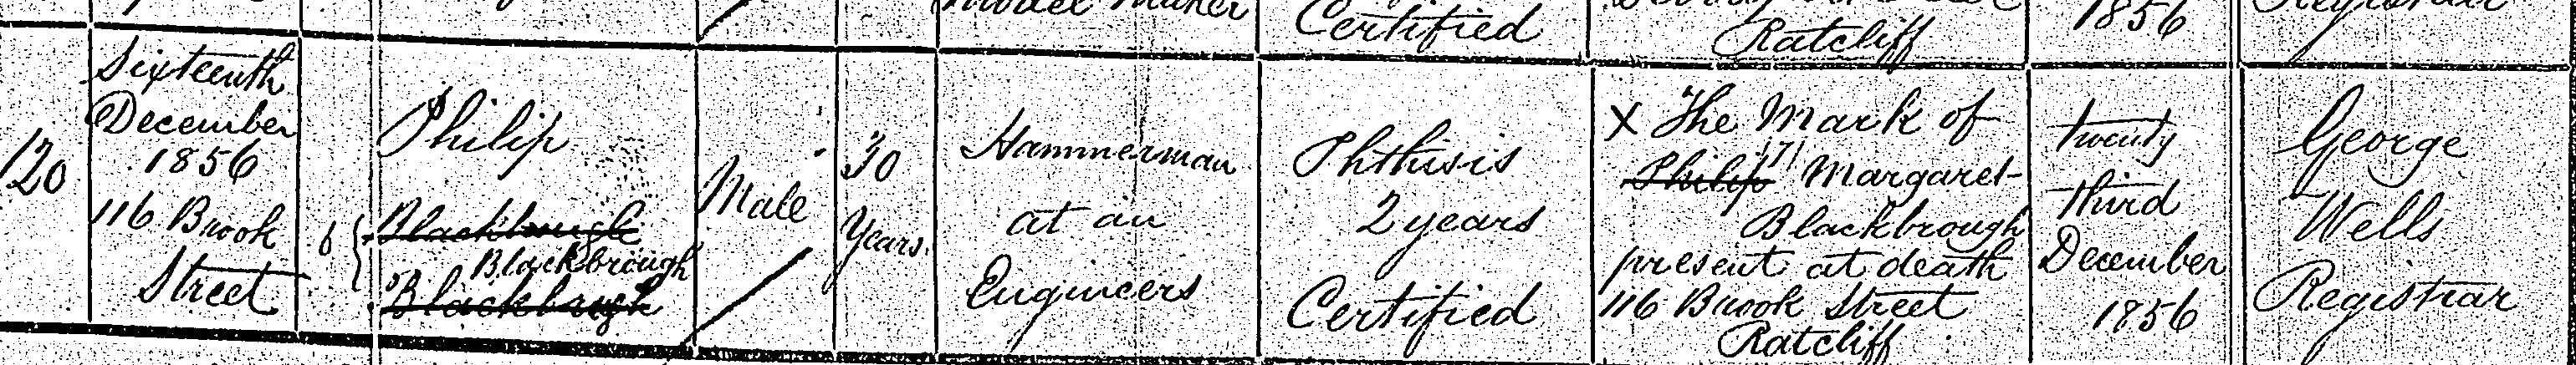 Certified
Ratcliff
1856
120
Sixteenth
December
1856
116 Brook
Street
6
Philip
Blackbrough
Male
30
Years
Hammerman
at an
Engineers
Phthisis
2 years
Certified
X The Mark of
Philip 7 Margaret
Blackbrough
present at death
116 Brook Street
Ratcliff
twenty
third
December
1856
George
Wells
Registrar